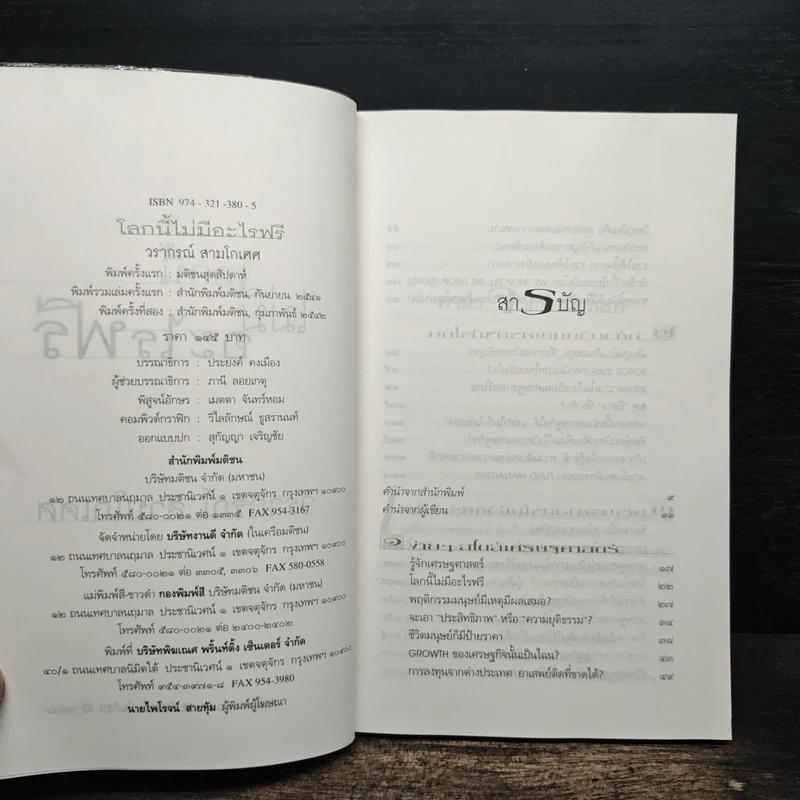 ISBN 974 - 321 -380 - 5
โลกนี้ไม่มีอะไรฟรี
วรากรณ์ สามโกเศศ
พิมพ์ครั้งแรก : มติชนสุดสัปดาห์
พิมพ์รวมเล่มครั้งแรก : สำนักพิมพ์มติชน, กันยายน ๒๕๔๑
พิมพ์ครั้งที่สอง : สำนักพิมพ์มติชน, กุมภาพันธ์ ๒๕๔๒
ราคา ๑๔๕ บาท
บรรณาธิการ : ประยงค์ คงเมือง
ผู้ช่วยบรรณาธิการ : ภานี ลอยเกตุ
พิสูจน์อักษร : เมตตา จันทร์หอม
คอมพิวต์กราฟิก : วิไลลักษณ์ ธูสรานนท์
ออกแบบปก : สุกัญญา เจริญชัย
สำนักพิมพ์มติชน
บริษัทมติชน จำกัด (มหาชน)
๑๒ ถนนเทศบาลนฤมาล ประชานิเวศน์ ๑ เขตจตุจักร กรุงเทพฯ ๑๐๙๐๐
โทรศัพท์ ๕๘๐-๐๐๒๑ ต่อ ๑๓๓๕ FAX 954-3167
จัดจำหน่ายโดย บริษัทงานดี จำกัด (ในเครือมติชน)
๑๒ ถนนเทศบาลนฤมาล ประชานิเวศน์ ๑ เขตจตุจักร กรุงเทพฯ ๑๐๙๐๐
โทรศัพท์ ๕๘๐-๐๐๒๑ ต่อ ๓๓๐๕, ๓๓๐๖ FAX 580-0558
แม่พิมพ์สี-ขาวดำ กองพิมพ์สี บริษัทมติชน จำกัด (มหาชน)
๑๒ ถนนเทศบาลนฤมาล ประชานิเวศน์ ๑ เขตจตุจักร กรุงเทพฯ ๑๐๙๐๐
โทรศัพท์ ๕๘๐-๐๐๒๑ ต่อ ๒๔๐๐-๒๔๐๒
พิมพ์ที่ บริษัทพิฆเณศ พริ้นท์ติ้ง เซ็นเตอร์ จำกัด
๔๐/๑ ถนนเทศบาลนิมิตใต้ ประชานิเวศน์ ๑ เขตจตุจักร กรุงเทพฯ ๑๐๙๐๐
โทรศัพท์ ๙๕๔-๓๙๗๑-๘ FAX 954-3980
นายไพโรจน์ สายทุ้ม ผู้พิมพ์ผู้โฆษณา
สารบัญ
คำนำจากสำนักพิมพ์ ๙
คำนำจากผู้เขียน ๑๑
รู้จักเศรษฐศาสตร์ ๑๗
โลกนี้ไม่มีอะไรฟรี ๒๒
พฤติกรรมมนุษย์มีเหตุมีผลเสมอ? ๒๗
จะเอา "ประสิทธิภาพ" หรือ "ความยุติธรรม"? ๓๔
ชีวิตมนุษย์ก็มีป้ายราคา ๓๘
GROWTH ของเศรษฐกิจนั้นเป็นไฉน? ๔๓
การลงทุนจากต่างประเทศ ยาเสพย์ติดที่ขาดได้? ๔๙